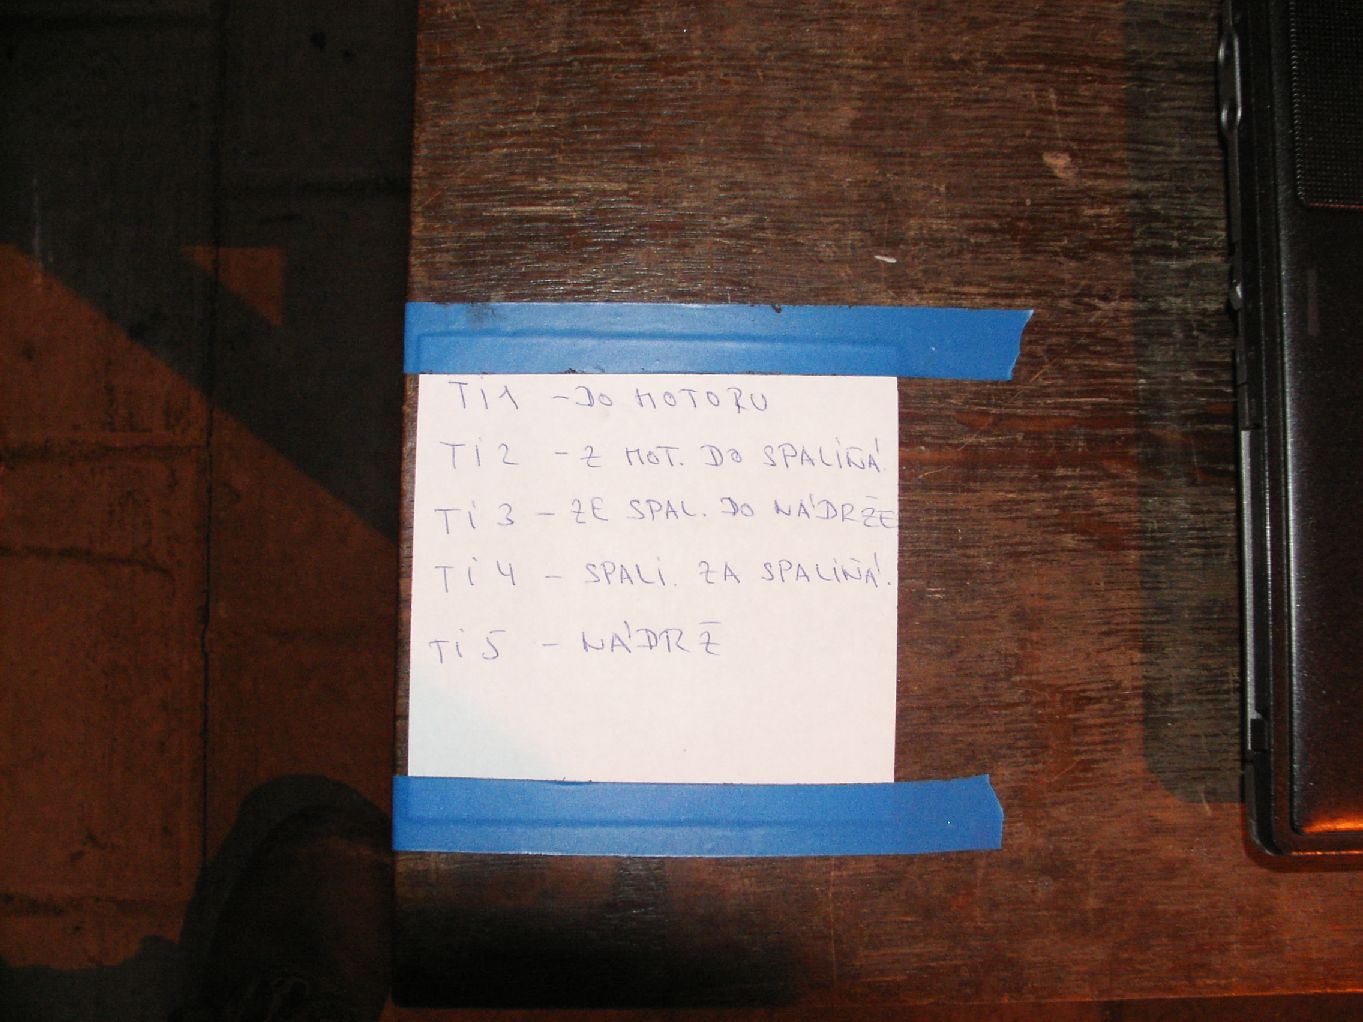 Ti1 - DO MOTORU
Ti 2 - Z MOT. DO SPALIŇÁ.
Ti 3 - ZE SPAL. DO NÁDRŽE
Ti 4 - SPALI. ZA SPALIŇÁ.
Ti 5 - NÁDRŽ